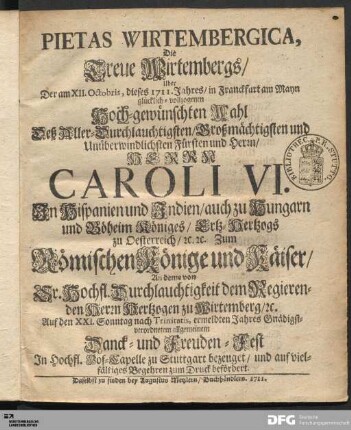 PIETAS WIRTEMBERGICA,
Die
Treue Wirtembergs/
über
Der am XII. Octobris, dieses 1711. Jahres/ in Franckfurt am Mayn
glücklich-vollzogenen
Hoch-gewünschten Wahl
Deß Aller-Durchlauchtigsten/ Großmächtigsten und
Unüberwindlichsten Fürsten und Herrn/
HERRN
CAROLI VI.
In Hispanien und Indien/ auch zu Hungarn
und Böheim Königes/ Ertz-Hertzogs
zu Oesterreich/ ꝛc. ꝛc. Zum
Römischen Könige und Käiser/
Als deme von
Sr. Hochfl. Durchlauchtigkeit dem Regieren-
den Herrn Hertzogen zu Wirtemberg/ ꝛc.
Auf den XXI. Sonntag nach Trinitatis, ermeldten Jahres Gnädigst-
verordnetem allgemeinem
Danck- und Freuden-Fest
In Hochfl. Hof-Capelle zu Stuttgart bezeuget/ und auf viel-
fältiges Begehren zum Druck befördert.
Daselbst zu finden bey Augustus Metzlern/ Buchhändlern. 1711.
BIBLIOTHEC. P.R. STUTTG.
DFG
Deutsche
Forschungsgemeinschaft